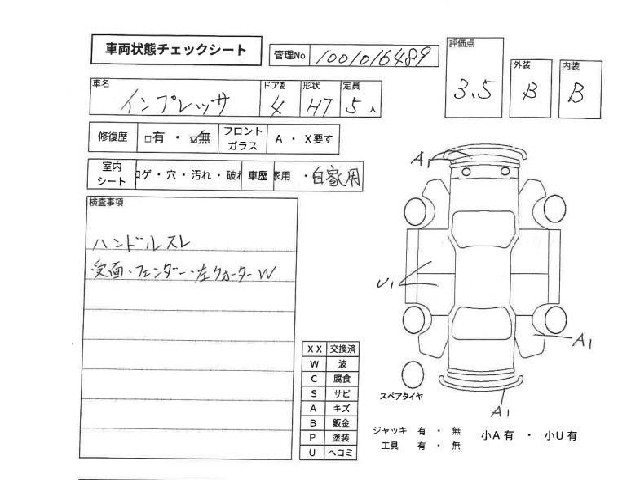 車両状態チェックシート
管理No 1001016489
評価点 3.5
外装 B
内装 B
車名 インプレッサ
ドア数 4
形状 HT
定員 5人
修復歴 □有・☑無
フロントガラス A ・ X要す
室内シート コゲ・穴・汚れ・破れ
車歴 ・自家用
検査事項
ハンドルスレ
フェンダー・左クォーターW
XX 交換済
W 波
C 腐食
S サビ
A キズ
B 鈑金
P 塗装
U ヘコミ
A1
U1
A1
A1
スペアタイヤ
ジャッキ 有 ・ 無
工具 有 ・ 無
小A有 ・ 小U有